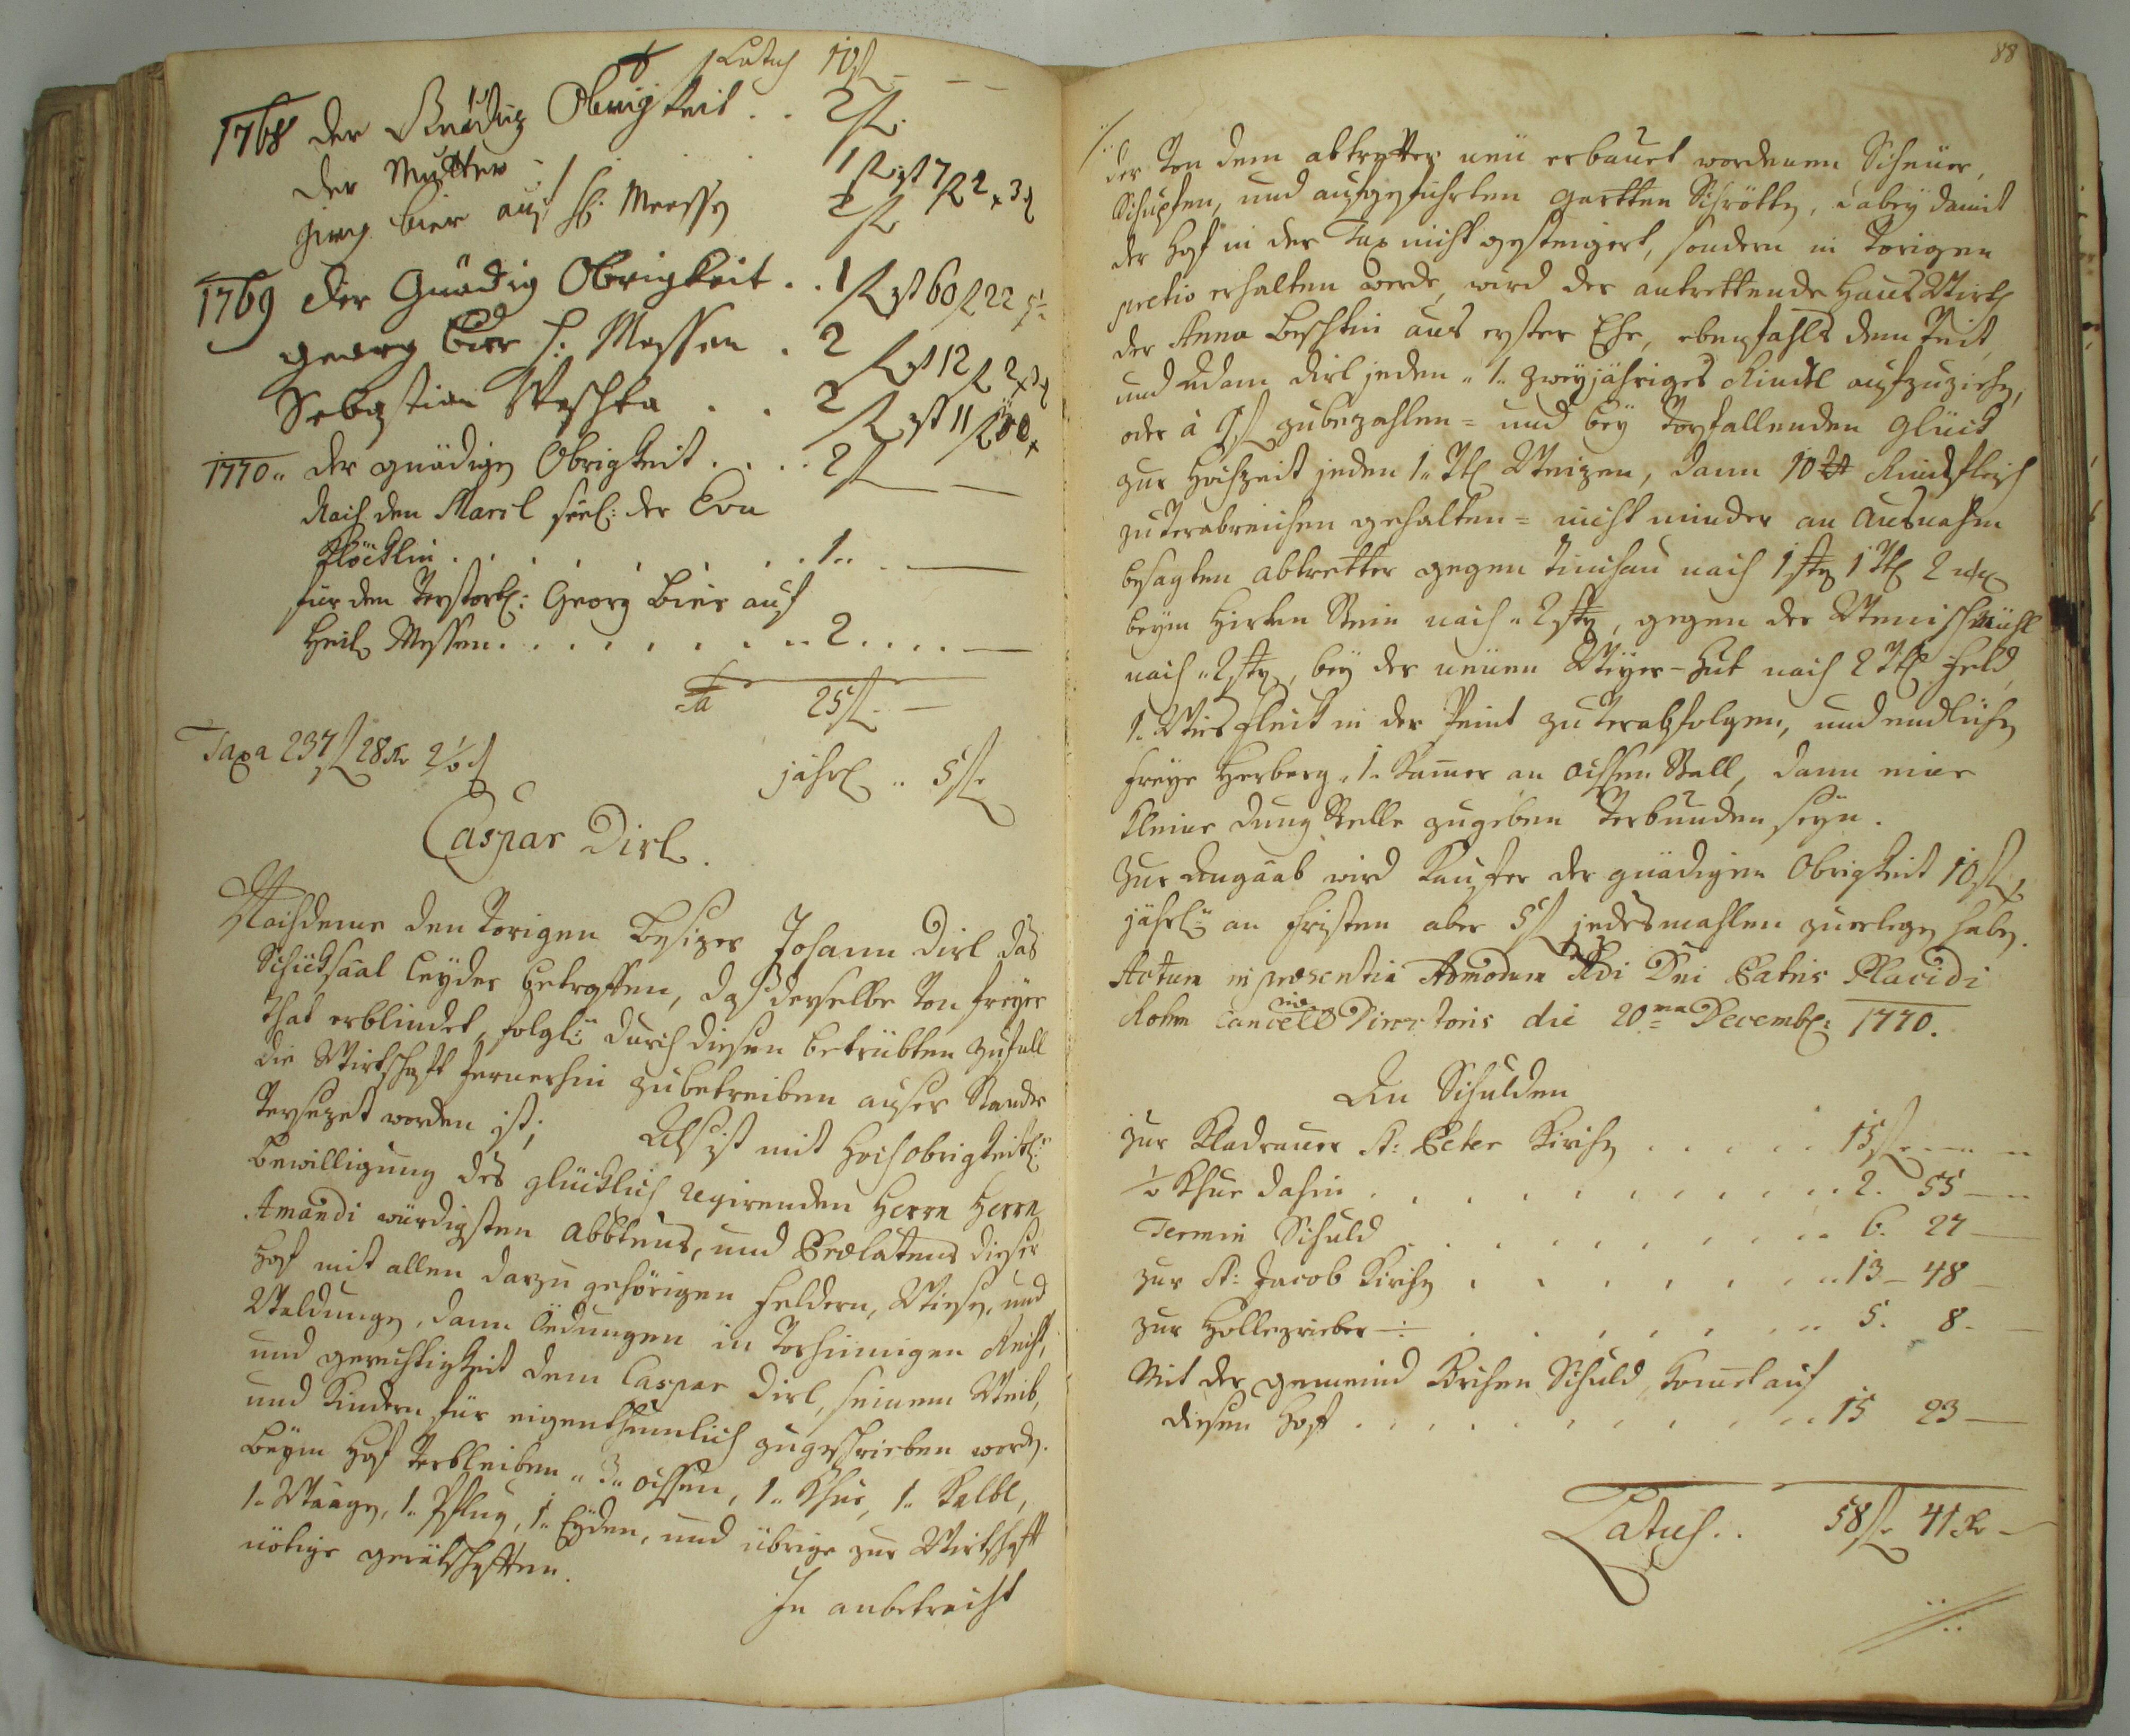 Latus 10 fl — —
1768 der Gnädig Obrigkeit . . 2 fl.
der Mutter . / . 1 fl
girg bier auf hl: Messy 2 fl
1769 der Gnädig Obrigkeit . . 1 fl
georg bier h. Messen . 2
Sebastian Peschka . . 2
1770 „ der gnädigen Obrigkeit . . . . 2 fl — —
Nach den Marcl seel: der Eva
Flöcklin . . . . . . . . 1 „ . —
für den verstorb: Georg bier auf
Heil. Messen . . . . . . . . . 2 . . . . —
25 fl. —
Taxa 237 fl 28 Kr 2 ½ d
jährl „ 5 fl
Caspar Dirl.
Nachdeme den vorigen besizer Johann Dirl das
Schicksaal leyder betroffen, daß derselbe von freyer
that erblindet, folgl: durch diesen betrübten zufall
die Wirthschafft fernerhin zubetreiben auser Stande
versezet worden ist; Als ist mit Hochobrigkeitl:
bewilligung des glücklich regirenden Herrn Herrn
Amandi würdigsten Abbtens, und Prælatens dieser
Hof mit allen darzu gehörigen Feldern, Wiesen, und
Waldungen, dann Öedungen in vorhinnigen Recht,
und gerechtigkeit dem Caspar Dirl, seinem Weib,
und Kindern für eigenthumlich zugeschrieben worden.
beym Hof verbleiben „ 3 „ ochsen, 1 „ Khue, 1 „ Kalbl,
1 „ Waagen, 1 „ Pflug, 1 „ Eyden, und übrige zur Wirtschafft
nötige geräthschafften.
In anbetracht
88
der von dem abtretter neu erbauet wordenen Scheuer,
Schupfen, und aufgeführten gartten , dabey damit
der Hof in der Tax nicht gesteigert, sondern in vorigen
pretio erhalten werde, wird der antrettende HausWirth
der Anna Beschtin aus erster Ehe, ebenfahls dem Veit,
und Adam Dirl jeden „ 1 „ zweyjähriges Rindl aufzuziehen,
oder à fl zubezahlen = und bey vorfallenden Glück
zur Hochzeit jeden 1 „ Weizen, dann 10 ℔ Rindfleisch
zuverabreichen gehalten = nicht minder an Ausnahm
besagten abtretter gegen nach 1 stn 1 Vtl 2
beym Hirten Stein nach „ 2 stn, gegen der
nach „ 2 stn, bey der neuen Weyer-Hut nach 2 Vtl Feld,
1 „ Wies Fleck in der Peint zuverabfolgen, und endlichen
freye Herberg „ 1 „ Kamer an ochsen Stall, dann eine
kleine dung Stelle zugeben verbunden seyn.
Zur Angaab wird Kaufer der gnädigen Obrigkeit 10 fl,
jährl: an fristen aber 5 fl jedesmahlen zuerlegen haben.
Actum in præsentia Admodum Rdi Dni Patris Placidi
Rohm Cancell Directoris die 20 ma Decemb: 1770.
An Schulden
zur Kladrauer St: Peter Kirchen . . . . . 15 fl — —
½ Khue dahin . . . . . . . . . . . 2. 55 —
Termin Schuld . . . . . . . . . . 6. 27 —
zur St: Jacob Kirchen . . . . . . . . 13 — 48 —
zur Hollezrieber — : . . . . . . . . 5. 8. —
Mit der gemeind Kirchen Schuld, komet auf
diesen Hoff . . . . . . . . . . . . 15 23 —
Latus . . 58 fl 41 Kr —